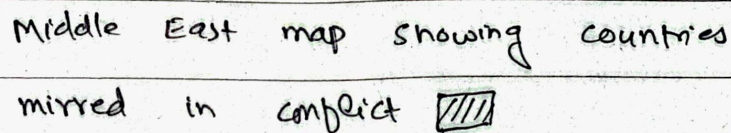 Middle East map showing countries
mirred in conflict